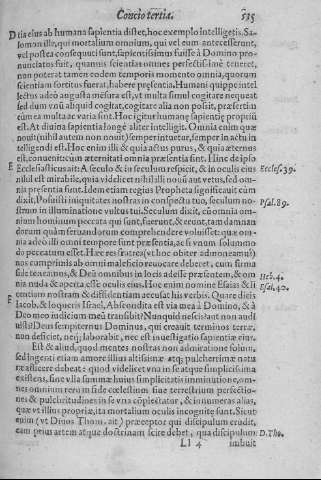 Concio tertia. 535
D tia eius ab humana sapientia distet, hoc exemplo intelligetis. Sa-
lomon ille, qui mortalium omnium, qui vel eum antecesserunt,
vel postea consequuti sunt, sapientissimus fuisse à Domino pro-
nunciatus fuit, quanuis scientias omnes perfectissimè teneret,
non poterat tamen eodem temporis momento omnia, quorum
scientiam sortitus fuerat, habere præsentia. Humani quippe intel
lectus adeò angusta mēsura est, vt multa simul cogitare nequeat
sed dum vnū aliquid cogitat, cogitare alia non possit, præsertim
cùm ea multa ac varia sunt. Hoc igitur humanę sapientię propriū
est. At diuina sapientia longè aliter intelligit. Omnia enim quæ
nouit (nihil autem non nouit) semper intuetur, semper in actu in
telligendi est. Hoc enim illi & quia actus purus, & quia æternus
est, conuenit: cùm æternitati omnia præsentia sint. Hinc de ipso
E Ecclesiasticus ait: A seculo & in seculum respicit, & in oculis eius Eccles. 39.
nihil est mirabile, quia videlicet nihil illi nouū aut vetus, sed om-
nia præsentia sunt. Idem etiam regius Propheta significauit cùm
dixit. Posuisti iniquitates nostras in conspectu tuo, seculum no- Psal. 89.
strum in illuminatione vultus tui. Seculum dixit, cū omnia om-
nium hominum peccata qui sunt, fuerunt, & erunt, tam damnan
dorum quàm seruandorum comprehendere voluisset: quæ om-
nia adeò illi omni tempore sunt præsentia, ac si vnum solummo
do peccatum esset. Hæc res fratres (vt hoc obiter admoneamus)
nos comprimis ab omni maleficio reuocare deberet, cùm firma
fide teneamus, & Deū omnibus in locis adesse præsentem, & om Heb. 4.
nia nuda & aperta esse oculis eius. Hoc enim nomine Esaias & li Esai. 40.
centiam nostram & diffidentiam accusat his verbis. Quare dicis
F Iacob, & loqueris Israel, Abscondita est via mea à Domino, & à
Deo meo iudicium meū transibit? Nunquid nescis aut non audi
uisti? Deus sempiternus Dominus, qui creauit terminos terræ,
non deficiet, neq; laborabit, nec est inuestigatio sapientiæ eius.
Est & aliud, quod mentes nostras non admiratione solùm,
sed ingenti etiam amore illius altissimæ atq; pulcherrimæ natu
ræ afficere dabeat: quòd videlicet vna in se atque simplicissima
existens, sine vlla summæ huius simplicitatis imminutione, om-
nes omnium rerum siue cœlestium siue terrestrium perfectio-
nes & pulchritudines in se vna cōplectatur, & innumeras alias,
quæ vt illius propriæ, ita mortalium oculis incognitæ sunt. Sicut
enim (vt Diuus Thom. ait) præceptor qui discipulum erudit,
eam prius artem atque doctrinam scire debet, qua discipulum D. Tho.
Ll 4 imbuit